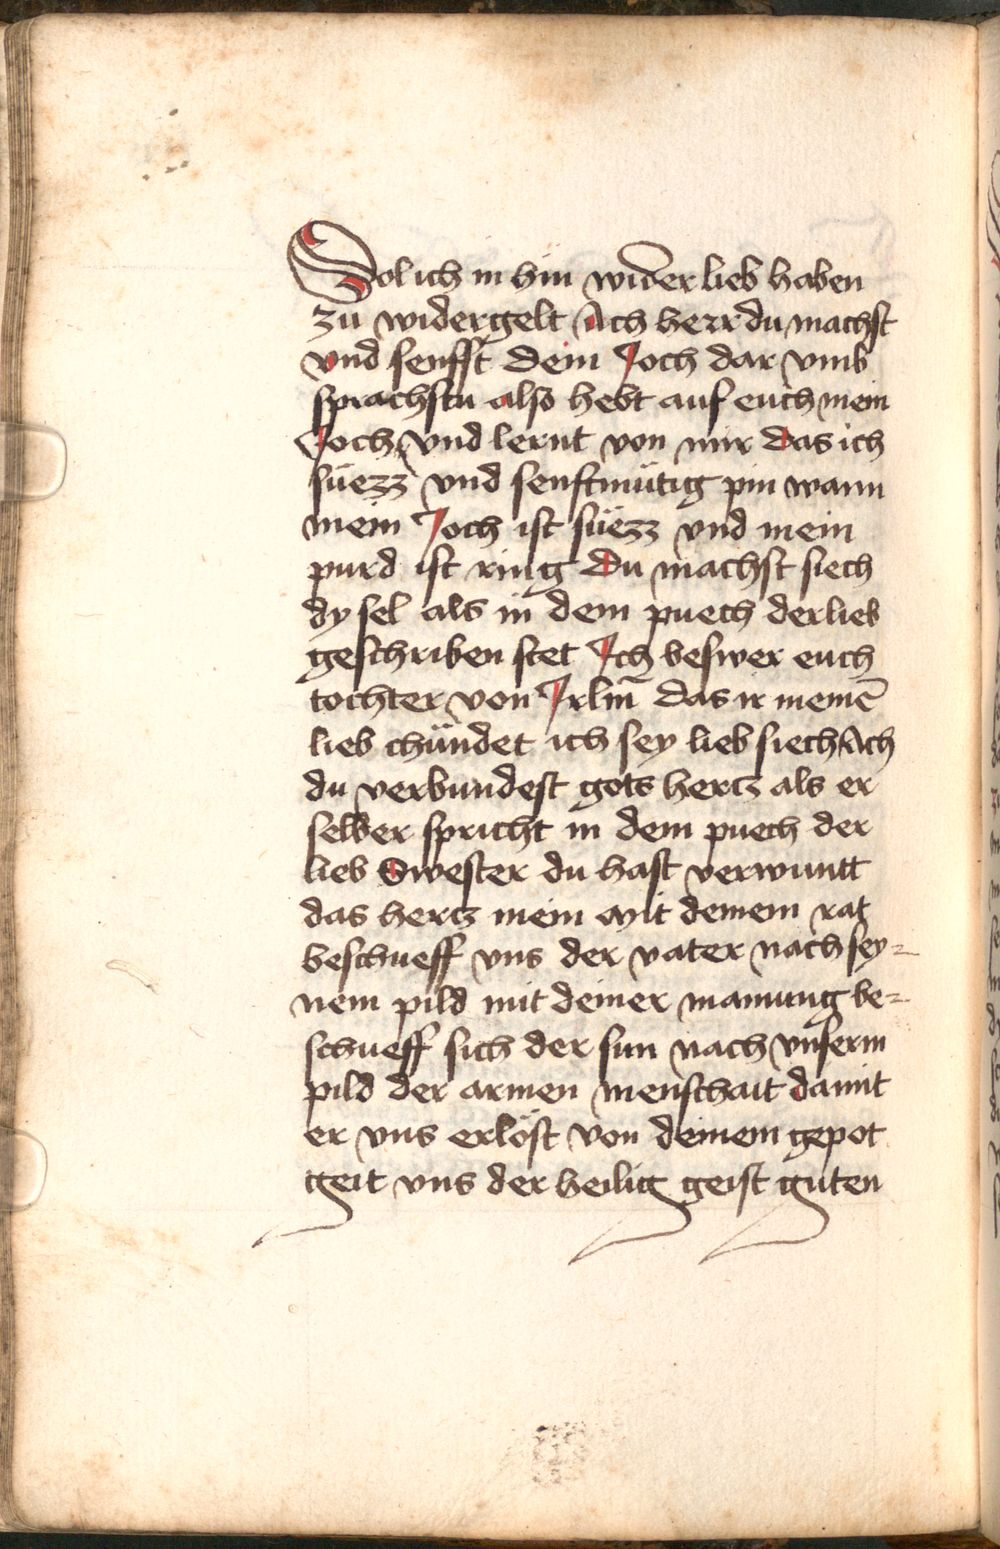 Sol ich in hin wider lieb haben
zu widergelt Ach herr du machst
vnd senfft dein Joch dar vmb
sprachstu also hebt auf euch mein
Joch vnd lernt von mir das ich
süezz vnd senftmütig pin wann
mein Joch ist süezz vnd mein
purd ist ring Du machst siech
dy sel als in dem puech der lieb
geschriben stet Ich beswer euch
tochter von Jrlm̄ das ir meinē
lieb chündet ich sey lieb siech Ach
du verbundest gots hertz als er
selber spricht in dem puech der
lieb Swester du hast verwuntt
das hertz mein Mit deinem rat
beschueff vns der vater nach sey=
nem pild mit deiner manung be=
schueff sich der sun nach vnserm
pild der armen menschait damit
er vns erlöst von deinem gepot
geit vns der heilig geist guten